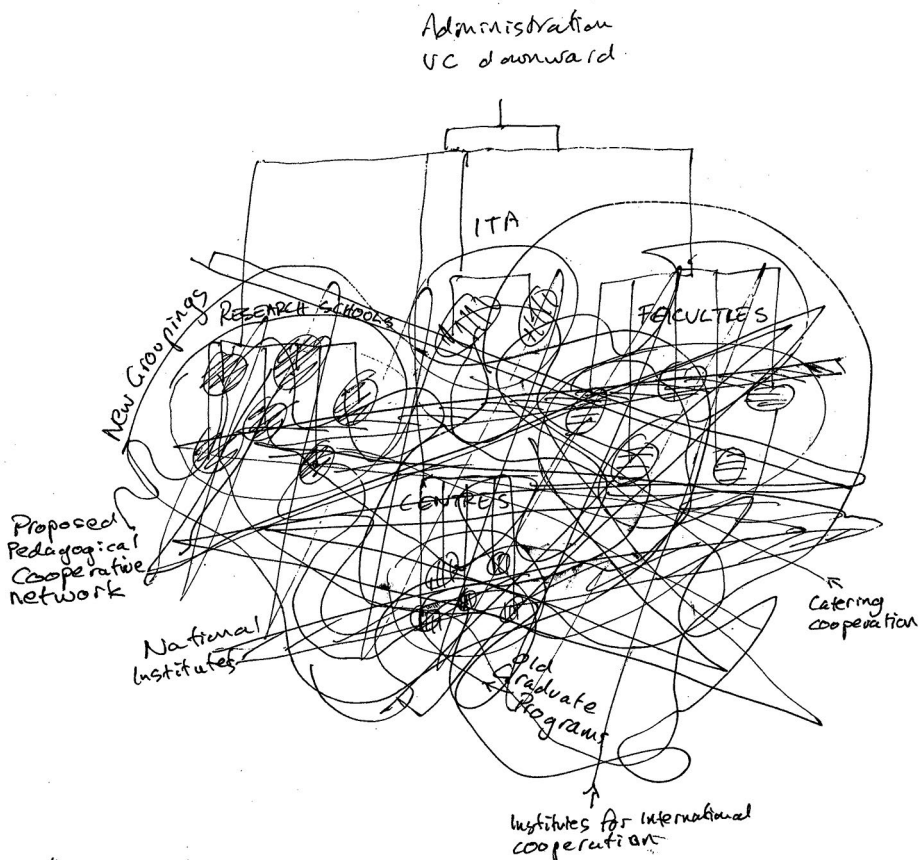 Administration
VC downward
ITA
New Groupings
RESEARCH SCHOOLS
FACULTIES
CENTRES
Proposed
Pedagogical
Cooperative
network
National
Institutes
Old
Graduate
Programs
Catering
cooperation
Institutes for International
cooperation